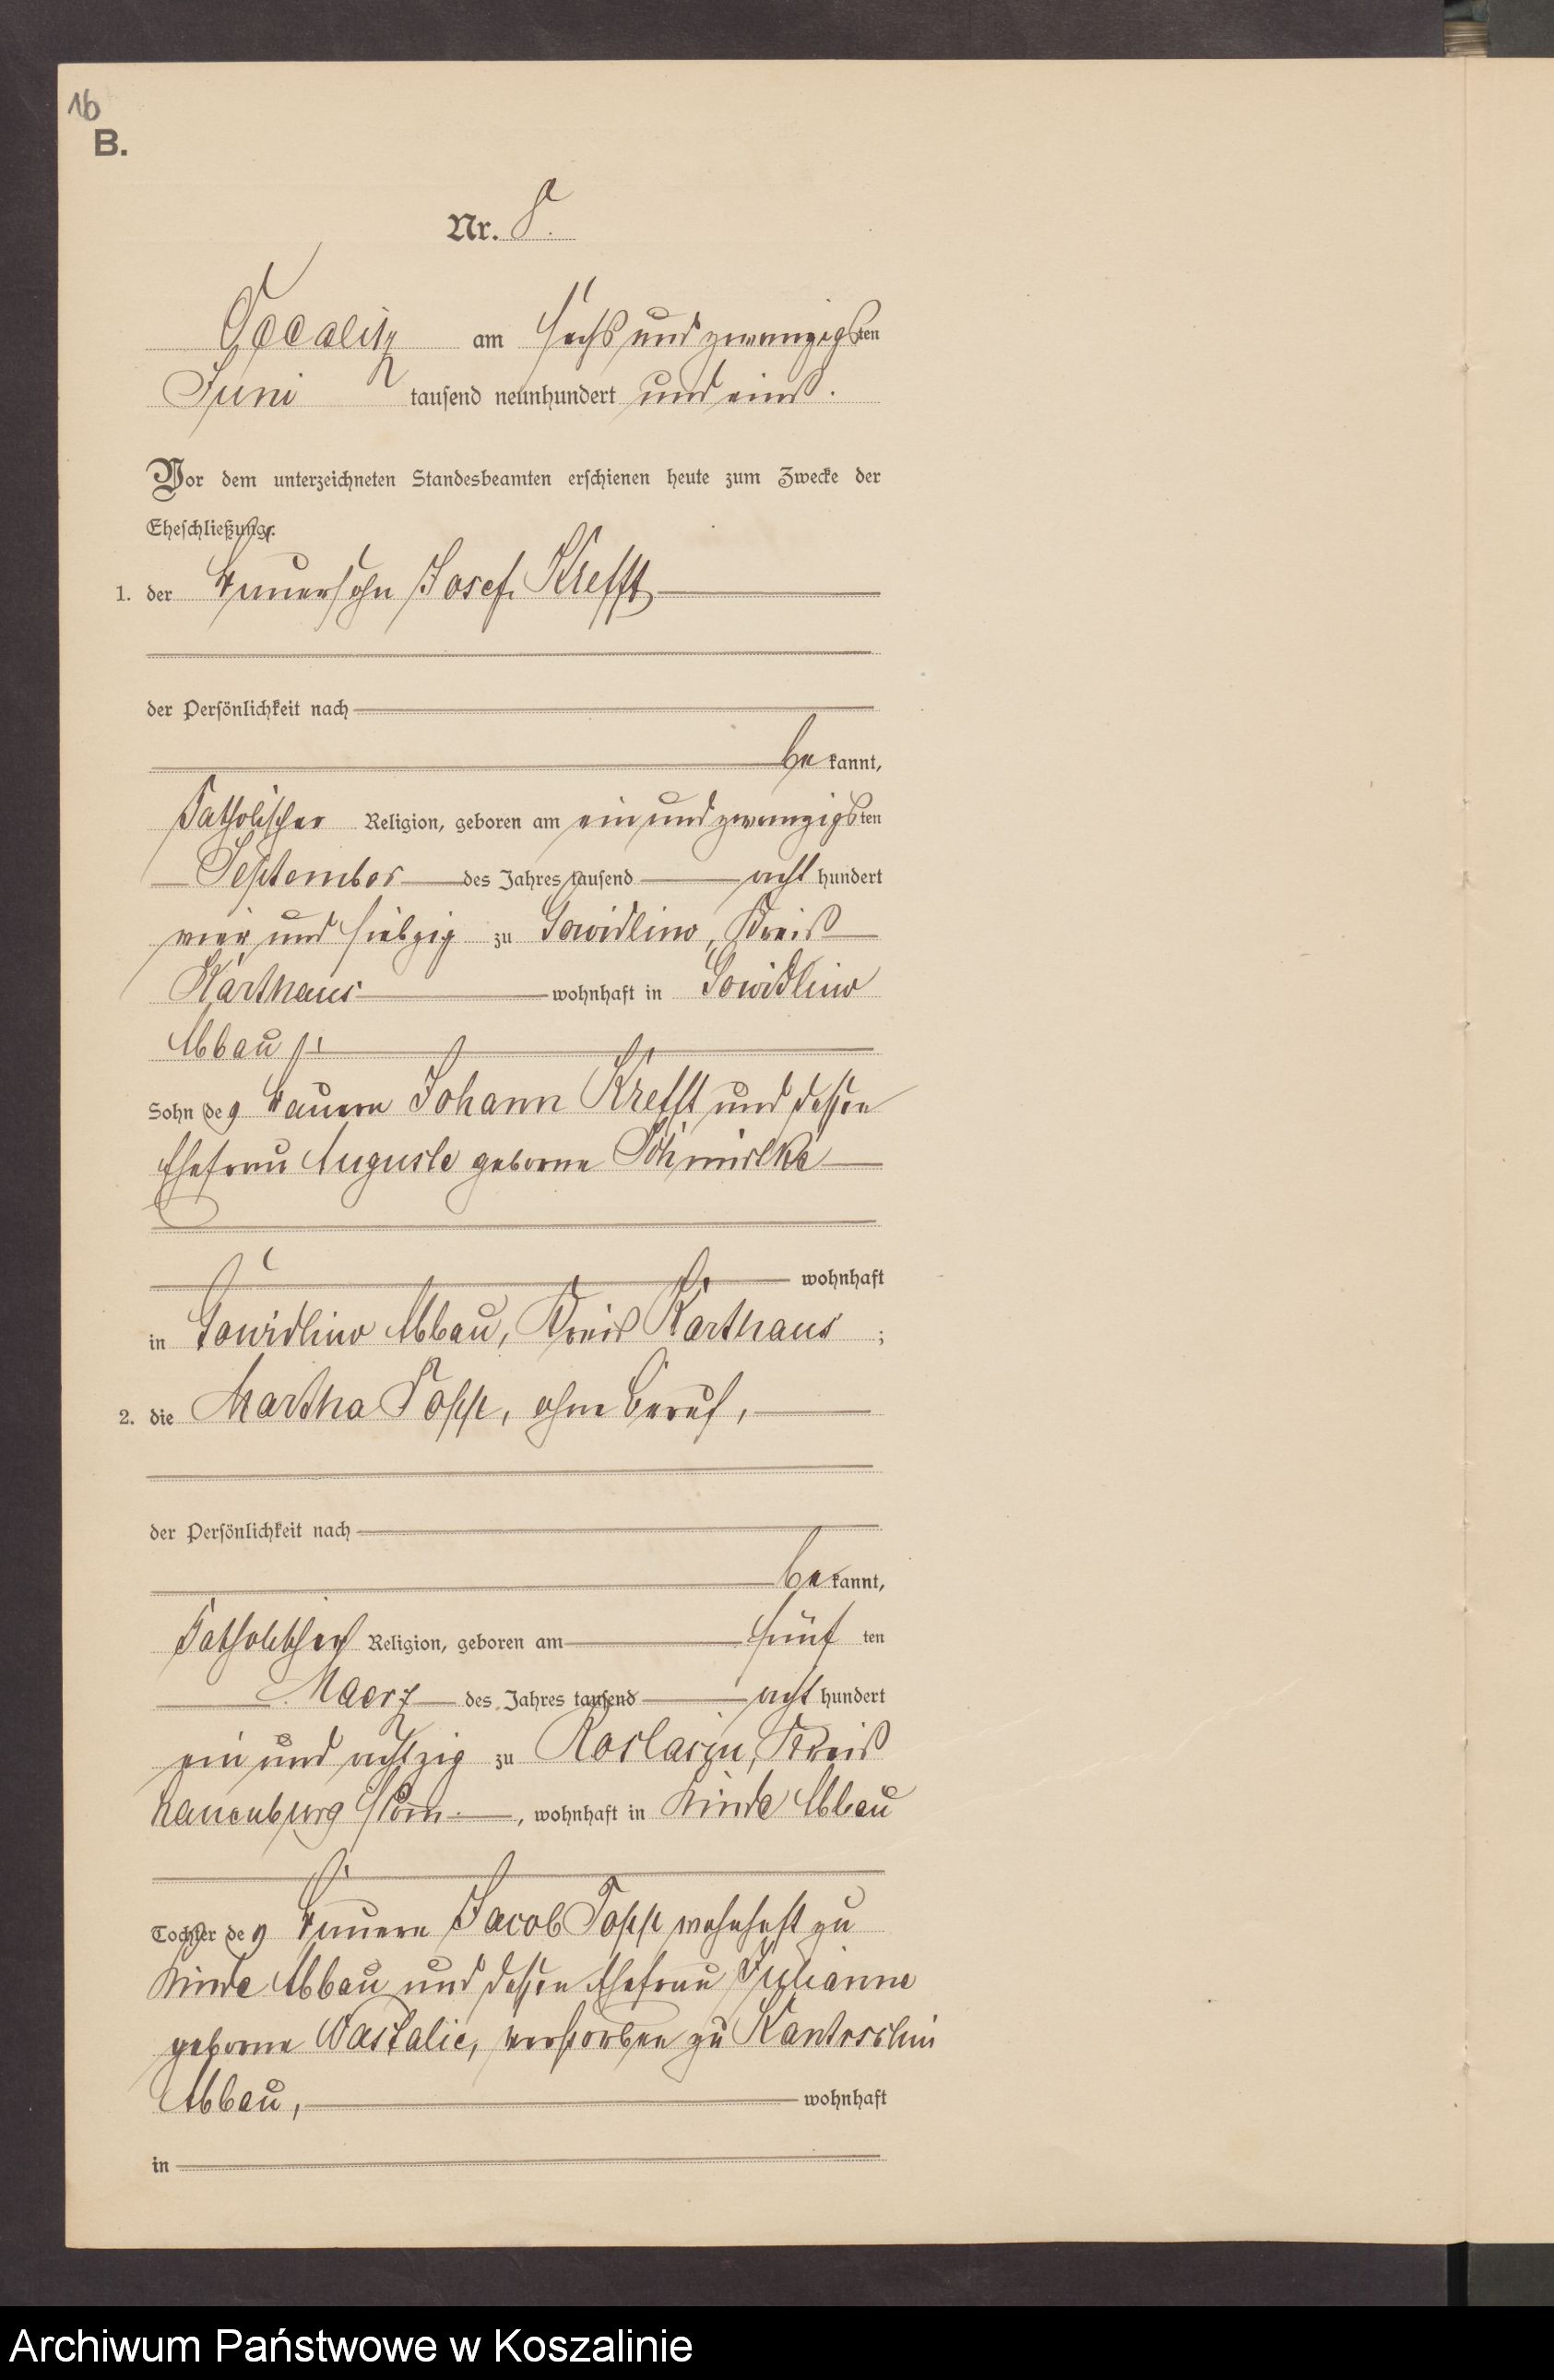 16
B.
Nr. 8.
am sechs und zwanzigsten
Juni tausend neunhundert und eins.
Vor dem unterzeichneten Standesbeamten erschienen heute zum Zwecke der
Eheschließung:
1. der Bauersohn Josef Krefft
der Persönlichkeit nach
be kannt,
Katholischer Religion, geboren am ein und zwanzigsten
September des Jahres tausend acht hundert
vier und siebzig zu Gowidlino, Kreis
Karthaus wohnhaft in Gowidlino
Abbau
Sohn des Bauern Johann Krefft und dessen
Ehefrau Auguste geborne Schmidtke
wohnhaft
in Gowidlino Abbau, Kreis Karthaus ;
2. die Martha Topp, ohne Beruf,
der Persönlichkeit nach
be kannt,
Katholischer Religion, geboren am fünf ten
Maerz des Jahres tausend acht hundert
ein und achtzig zu Roslasin, Kreis
Lauenburg Pom. , wohnhaft in Linde Abbau
Tochter des Bauern Jacob Topp wohnhaft zu
Linde Abbau und dessen Ehefrau Julianne
geborne verstorben zu
Abbau, wohnhaft
in
Archiwum Państwowe w Koszalinie